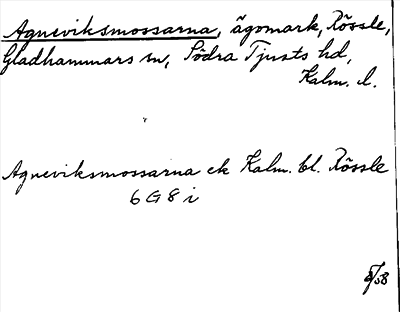 Agneviksmossarna, ägomark, Rössle,
Gladhammars sn, Södra Tjusts hd,
Kalm. l.
Agneviksmossarna ek Kalm. bl. Rössle
6 G 8 i
8/58